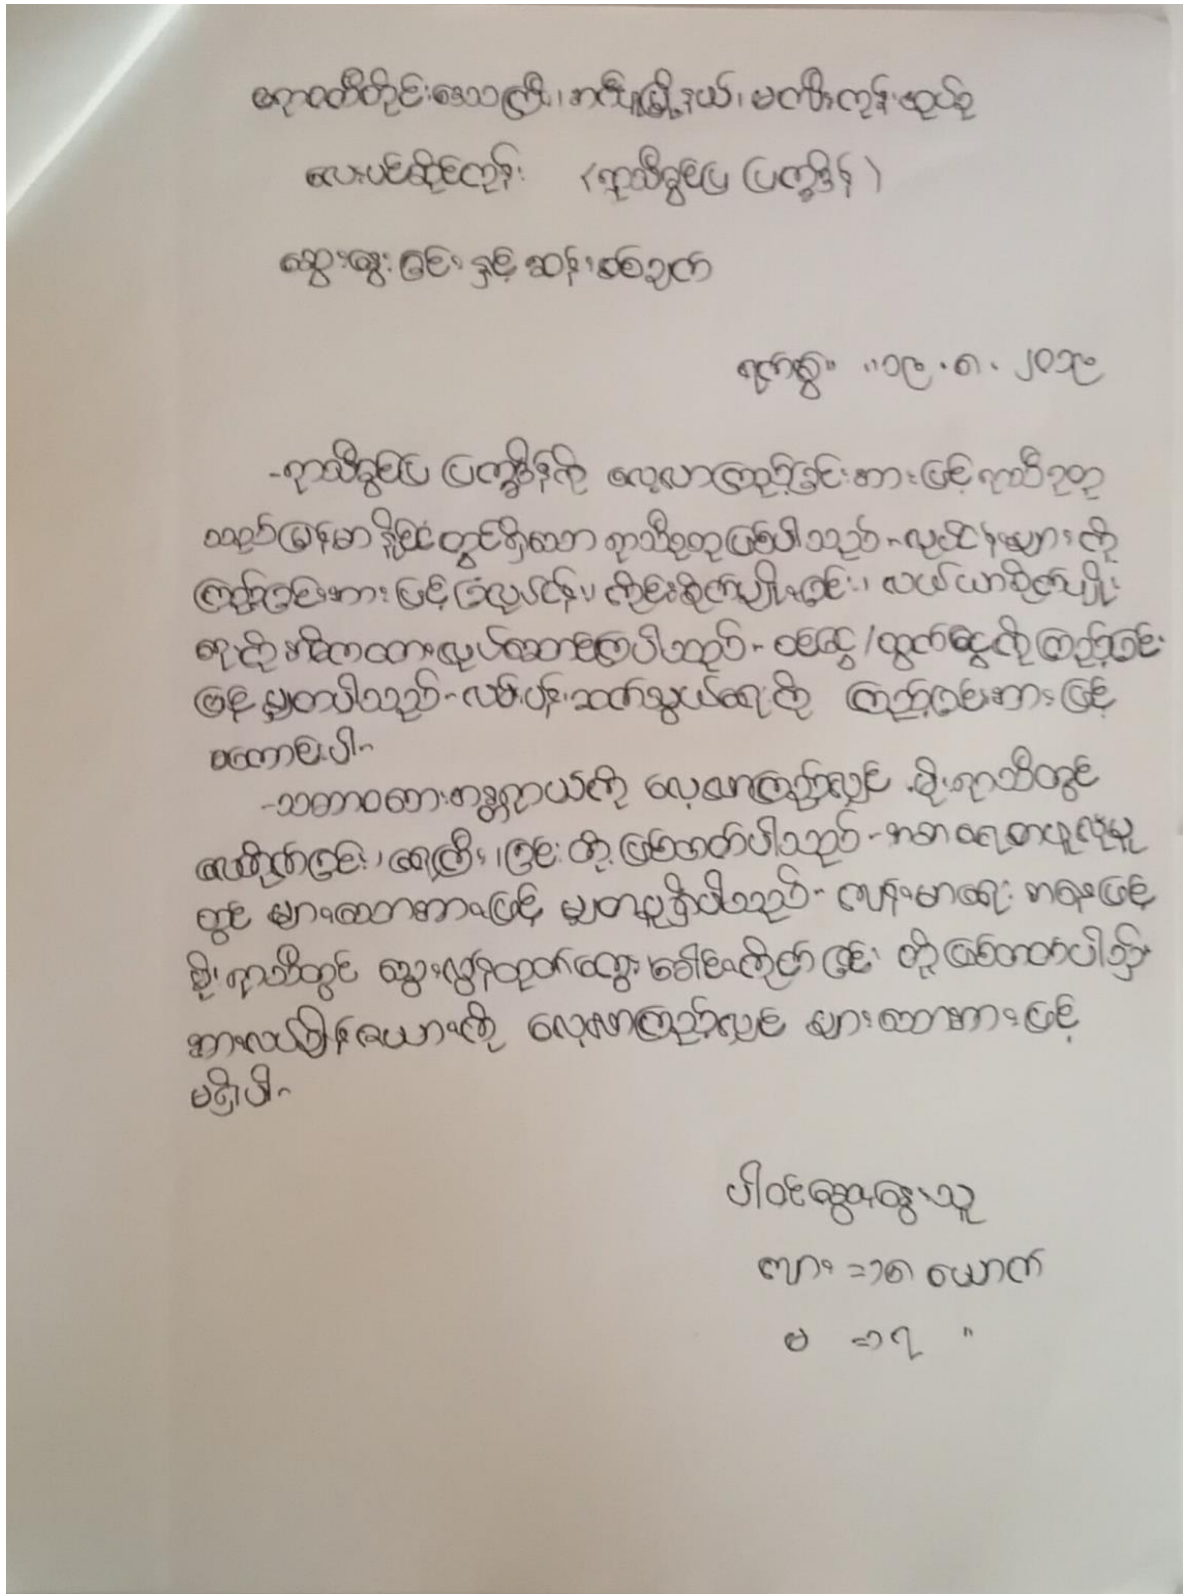 ဧရာဝတီတိုင်းဒေသကြီး၊ မြို့နယ်၊ မကျီးကုန်းအုပ်စု
လေးပင်ဆိုင်ကုန်း (ရာသီခွင်ပြ ပြက္ခဒိန်)
ဆွေးနွေးခြင်းနှင့်ဆန်းစစ်ချက်
ရက်စွဲ။ ။၁၉.၈.၂၀၁၉
-ရာသီခွင်ပြ ပြက္ခဒိန်ကို လေ့လာကြည့်ခြင်းအားဖြင့် ရာသီဥတု
သည် မြန်မာနိုင်ငံတွင်ရှိသော ရာသီဥတုဖြစ်ပါသည်- လုပ်ငန်းများကို
ကြည့်ခြင်းအားဖြင့် ခြံလုပ်ငန်း၊ ကိုင်းစိုက်ပျိုးခြင်း၊ လယ်ယာစိုက်ပျိုး
ရေးကို အဓိကထားလုပ်ဆောင်ကြပါသည်- ဝင်ငွေ/ထွက်ငွေကို ကြည့်ခြင်း
ဖြင့် မျှတပါသည်- လမ်းပန်းဆက်သွယ်ရေးကို ကြည့်ခြင်းအားဖြင့်
မကောင်းပါ-
-သဘာဝဘေးအန္တရာယ်ကို လေ့လာကြည့်လျှင် မိုးရာသီတွင်
လေတိုက်ခြင်း၊ ရေကြီးခြင်းတို့ ဖြစ်တတ်ပါသည်- အစားရေစာဖူလုံမှု
တွင် များသောအားဖြင့် မျှတမှုရှိပါသည်- ကျန်းမာရေးအနေဖြင့်
မိုးရာသီတွင် သွေးလွန်တုတ်ကွေး ခေါင်းကိုက်ခြင်းတို့ဖြစ်တတ်ပါသည်။
အားလပ်ချိန်ဇယားကို လေ့လာကြည့်လျှင် များသောအားဖြင့်
မရှိပါ-
ပါဝင်ဆွေးနွေးသူ
ကျား =၁၈ ယောက်
မ =၁၇ "